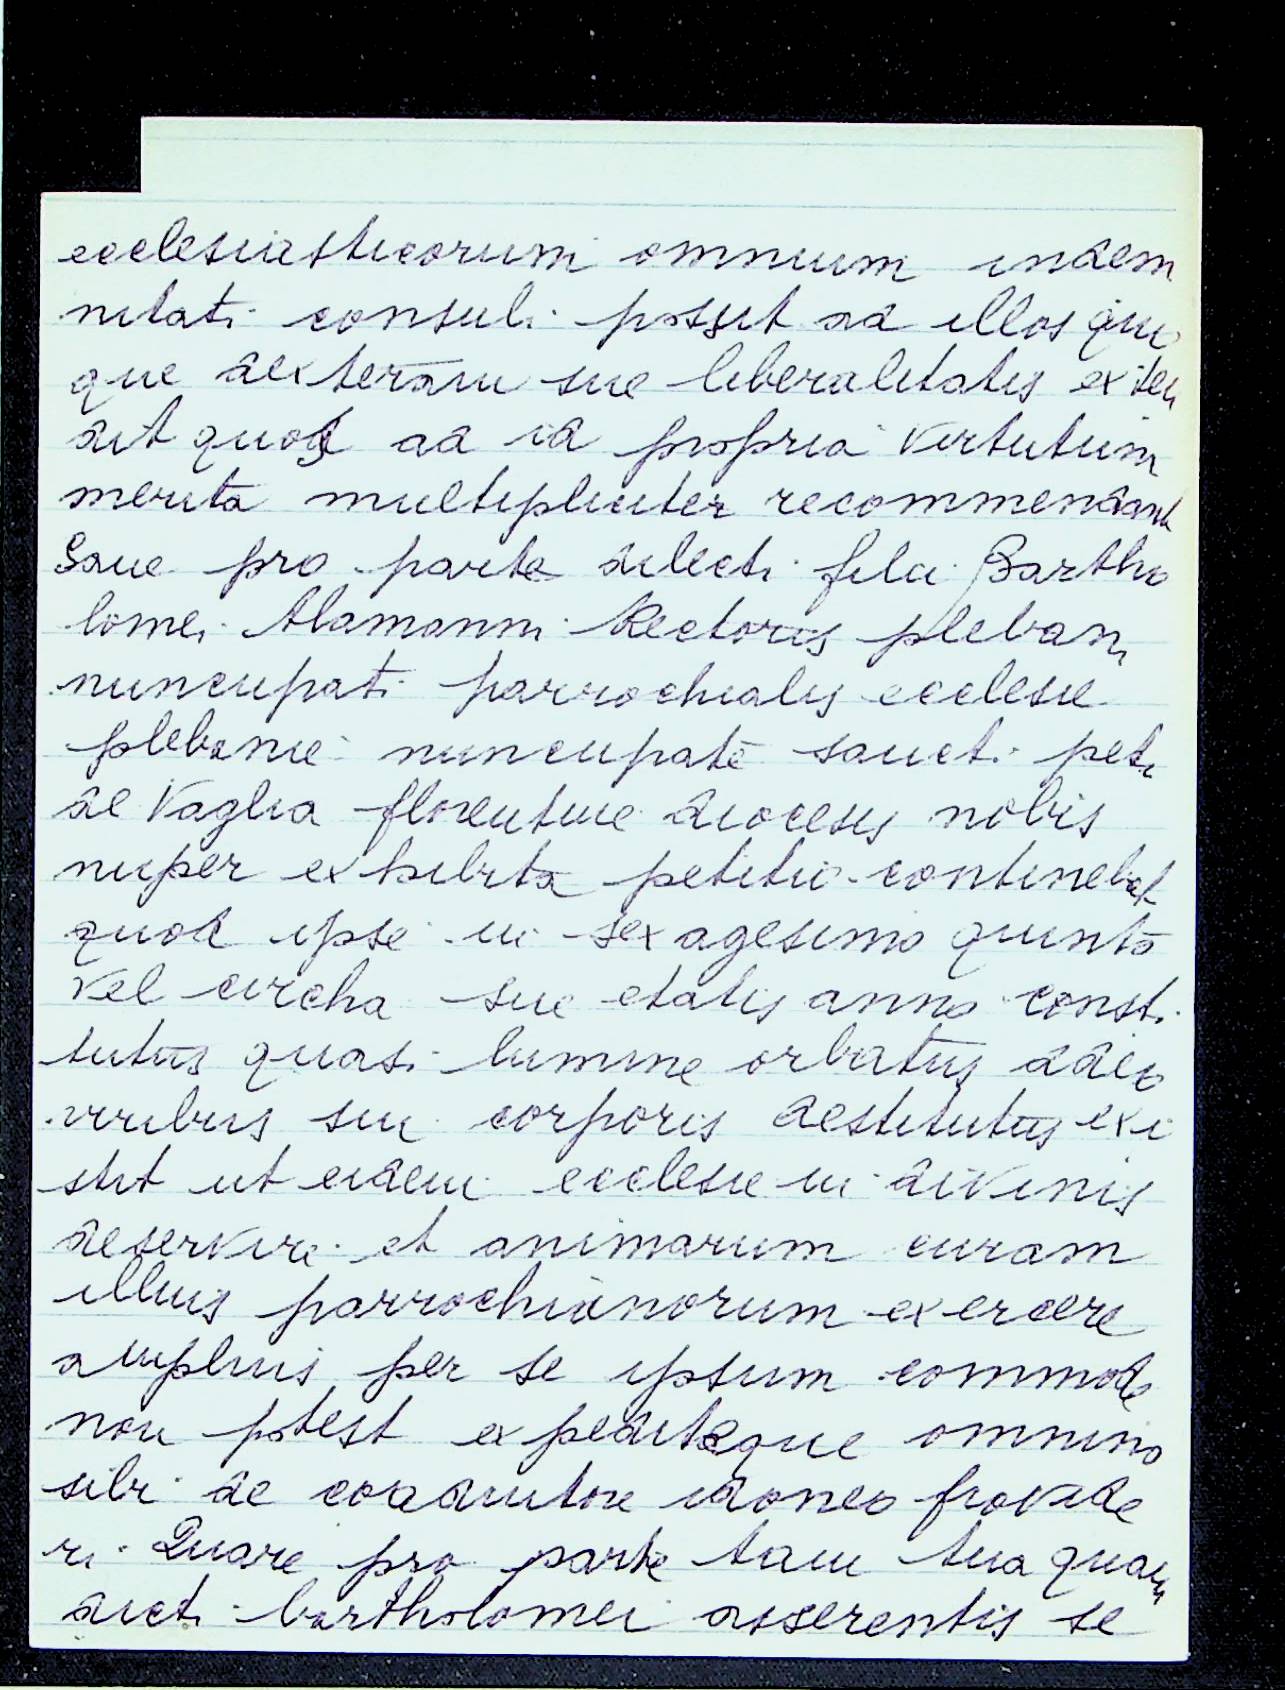 ecclesiasticorum omnium indem
nitati consuli possit ad illos quo
que dexteram sue liberalitatis exten
dit quos ad id propria virtutum
merita multipliciter recommendant
Sane pro parte dilecti filii Bartho
lomei Alamanni Rectoris plebani
nuncupati parrochialis ecclesie
plebanie nuncupate sancti petri
de Vaglia florentine diocesis nobis
nuper exhibita petitio continebat
quod ipse in sexagesimo quinto
vel circha sue etatis anno consti
tutus quasi lumine orbatus adeo
viribus sui corporis destitutus exi
stit ut eidem ecclesie in divinis
deservire et animarum curam
illius parrochianorum exercere
amplius per se ipsum commode
non potest expeditque omnino
sibi de coadiutore idoneo provide
ri Quare pro parte tam tua quam
dicti bartholomei asserentis se